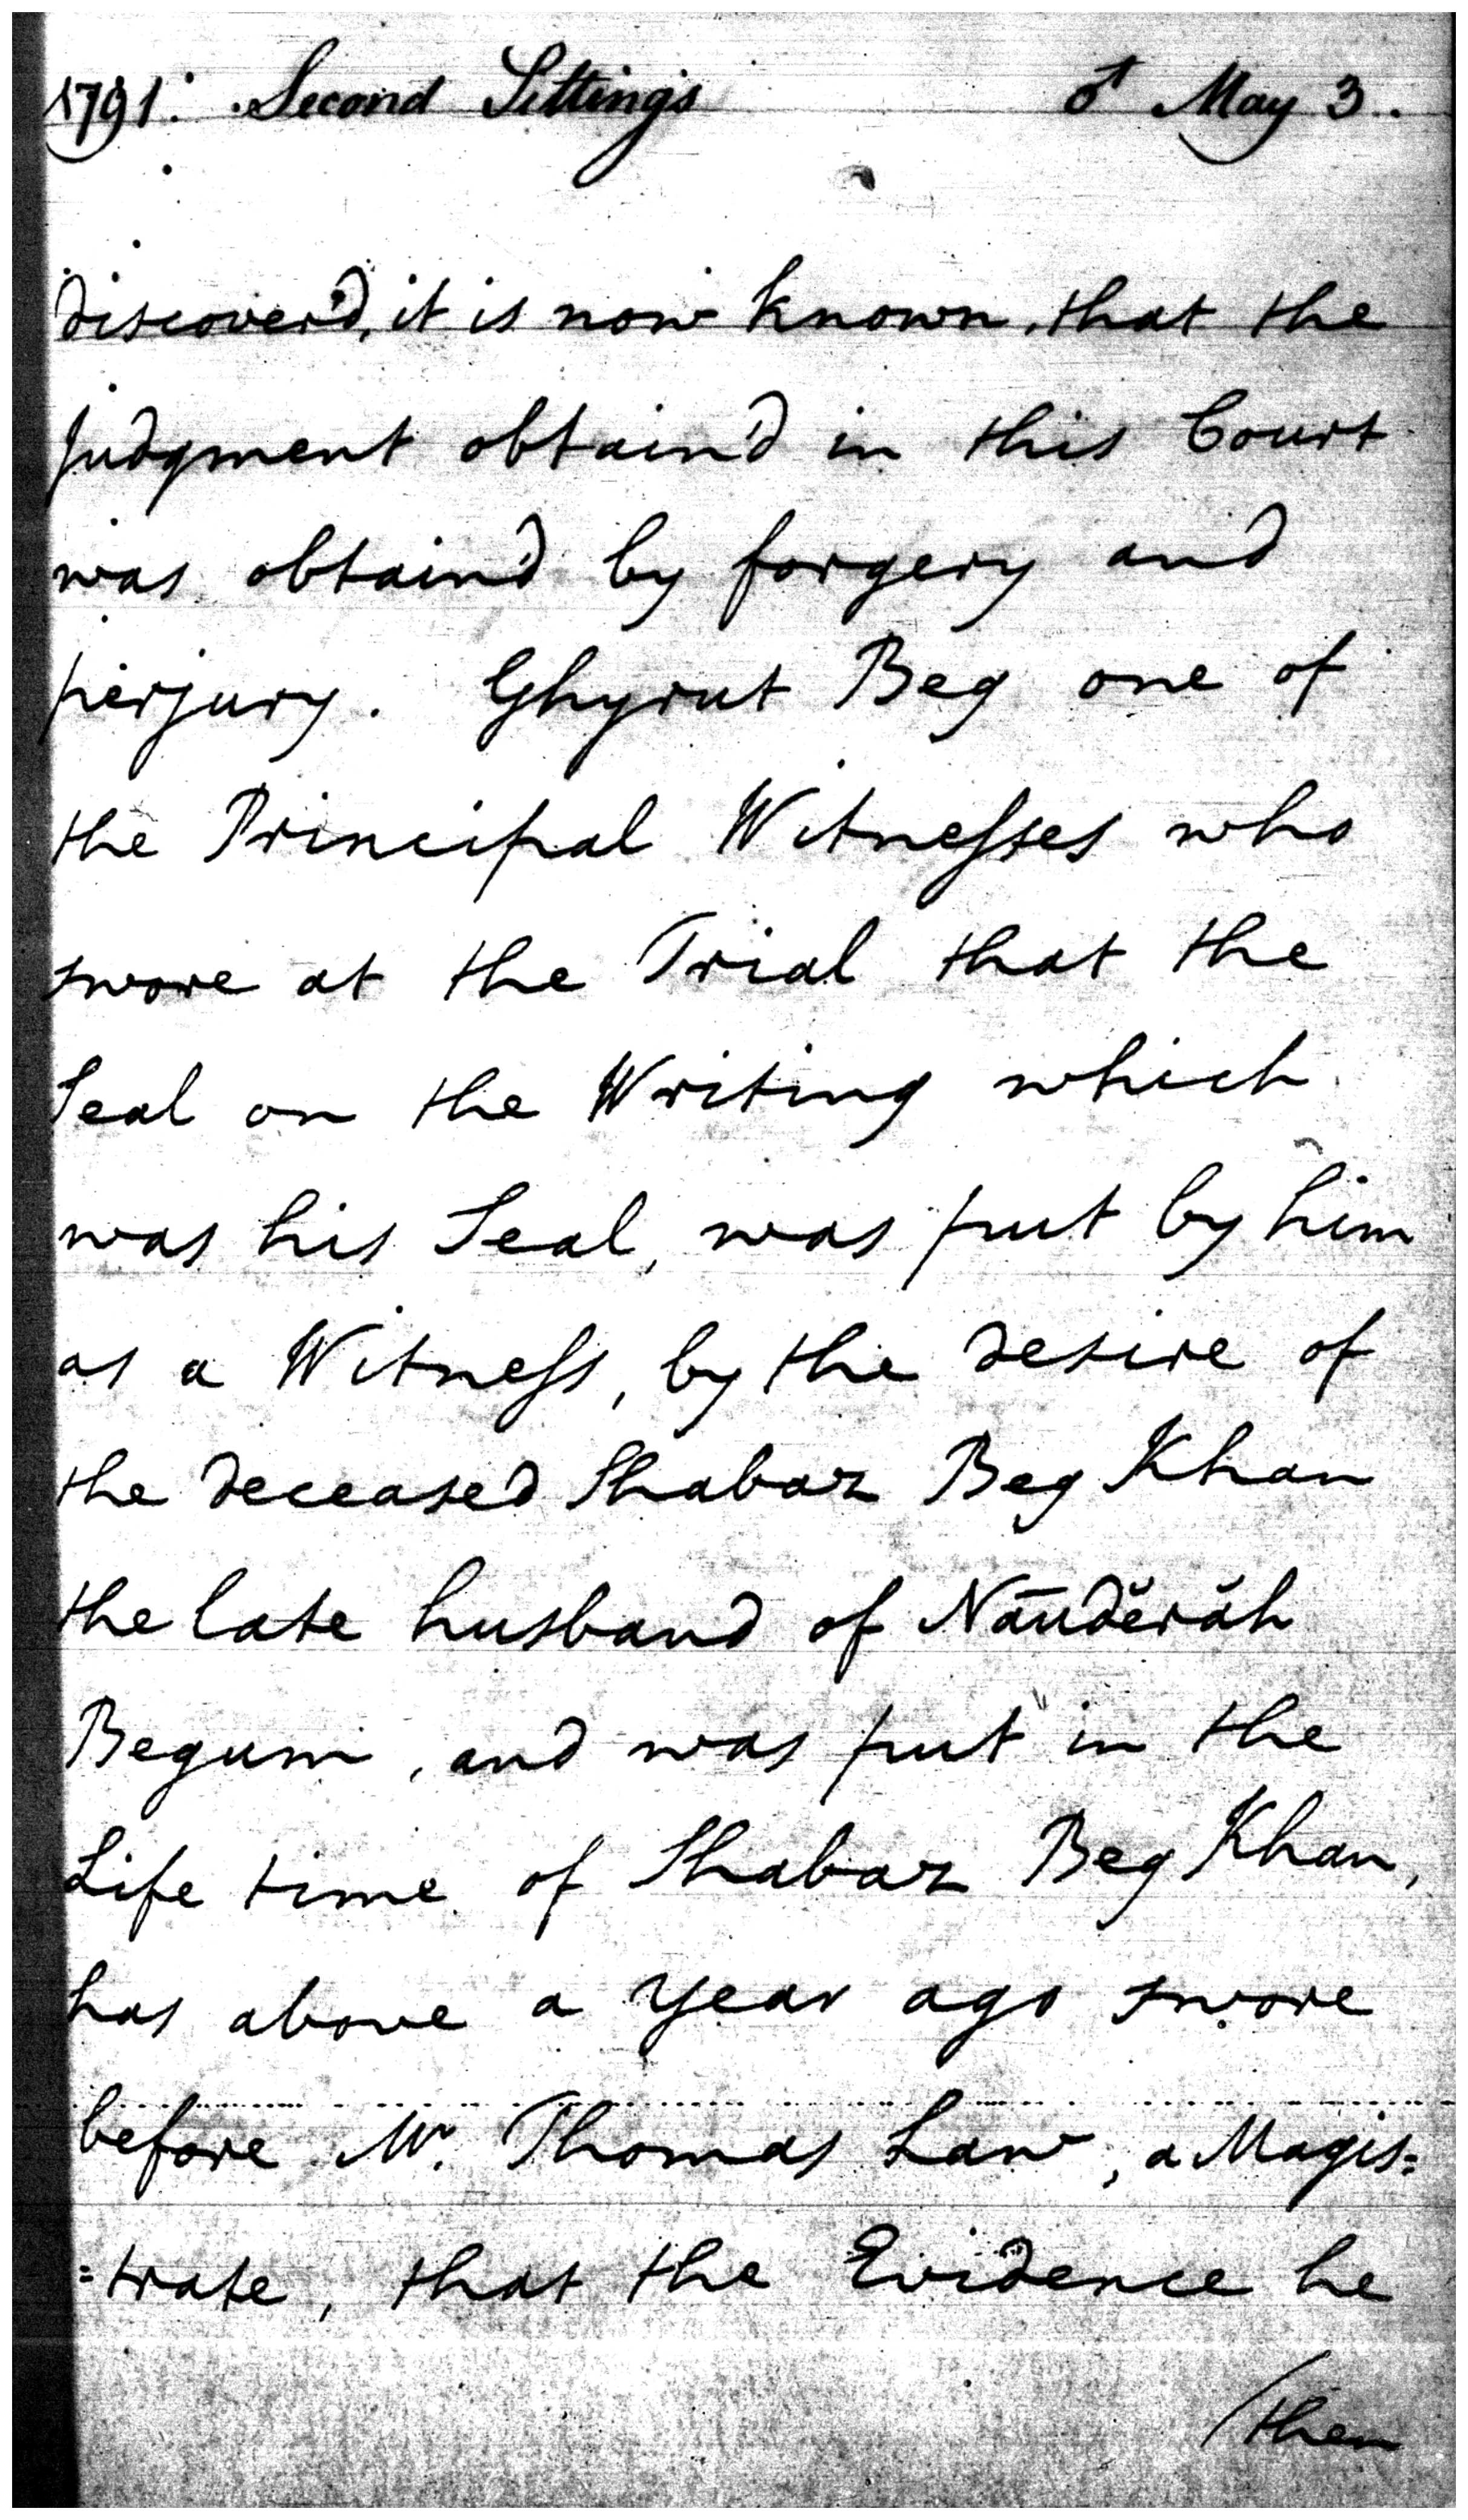 1791. Second Sittings ♂ May 3.
discover'd, it is now known, that the
judgment obtain'd in this Court
was obtain'd by forgery and
perjury. Ghyrut Beg one of
the Principal Witneſses who
swore at the Trial that the
Seal on the Writing which
was his Seal, was put by him
as a Witneſs, by the desire of
the deceased Shabaz Beg Khan
the late husband of Nāudĕrăh
Begum, and was put in the
Life time of Shabaz Beg Khan,
has above a Year ago swore
before Mr. Thomas Law, a Magis=
=trate, that the Evidence he
/then